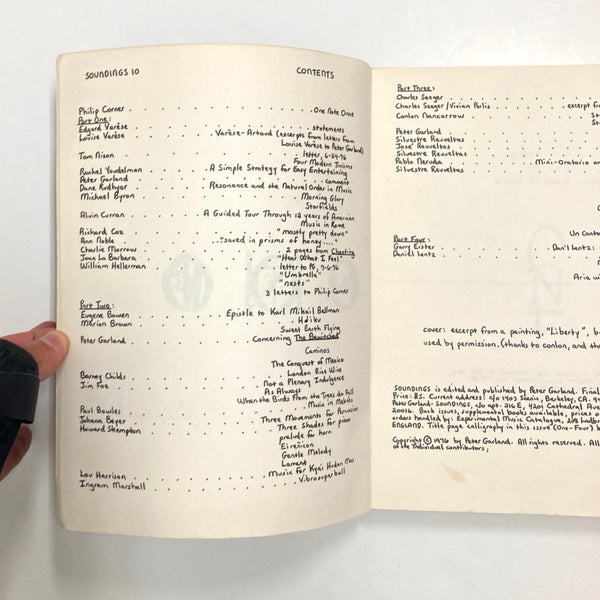 SOUNDINGS 10 CONTENTS
Philip Corner . . . . . . . . . . . . . . . One Note Once
Part One:
Edgard Varèse . . . . . . . . . . . . . . . statements
Louise Varèse . . . . . . . Varèse-Artaud (excerpts from letters from
Louise Varèse to Peter Garland)
Tom Nixon . . . . . . . . . . . . . . . letter, 6-24-76
Four Modern Truisms
Rachel Youdelman . . . . . . A Simple Strategy for Easy Entertaining
Peter Garland . . . . . . . . . . . . . . . comment
Dane Rudhyar . . . . . . Resonance and the Natural Order in Music
Michael Byron . . . . . . . . . . . . . . . Morning Glory
Starfields
Alvin Curran . . . . . . A Guided Tour Through 12 years of American
Music in Rome
Richard Cox . . . . . . . . . . . . "mostly pretty down"
Ann Noble . . . . . . . "saved in prisms of honey...."
Charlie Morrow . . . . . . . . . . . 2 pages from Chanting
Joan La Barbara . . . . . . . . . . . "Hear What I Feel"
William Hellerman . . . . . . . . . . . letter to PG, 7-6-76
"Umbrella"
"nests"
3 letters to Philip Corner
Part Two:
Eugene Bowen . . . . . . . Epistle to Karl Mikail Bellman
Marion Brown . . . . . . . . . . . . . . . Haiku
Sweet Earth Flying
Peter Garland . . . . . . . . . . . Concerning The Bewitched
Caminos
The Conquest of Mexico
Barney Childs . . . . . . . . . . . . London Rice Wine
Jim Fox . . . . . . . . . . . . Not a Plenary Indulgence
As Always
When the Birds From the Trees do Fall
Paul Bowles . . . . . . . . . . . . . Music in Mebits
Johana Beyer . . . . . . . Three Movements for Percussion
Howard Skempton . . . . . . . . . . . Three Shades for piano
prelude for horn
Eirenicon
Gentle Melody
Lament
Lou Harrison . . . . . . . . . . . Music For Kyai Hudan Mas
Ingram Marshall . . . . . . . . . . . . . . Vibrosuperball
Part Three:
Charles Seeger . . . . . . . . . . .
Charles Seeger/Vivian Perlis . . . . . . . excerpt f
Conlon Nancarrow . . . . . . . . . . . St
S
Peter Garland . . . . . . . . . . .
Silvestre Revueltas . . . . . . . . . . .
José Revueltas . . . . . . . . . . .
Silvestre Revueltas . . . . . . . . . . .
Pablo Neruda . . . . . . . Mini-Oratorio o
Silvestre Revueltas . . . . . . . . . . .
Un Canto
Part Four:
Garry Eister . . . . . . . . . . . Dan'l Lentz:
Daniel Lentz . . . . . . . . . . .
Aria w
cover: excerpt from a painting, "Liberty", b
used by permission. (thanks to conlon, and th
SOUNDINGS is edited and published by Peter Garland. Final
Price: $5. Current address: c/o 1403 Stanic, Berkeley, CA. 94
Peter Garland - SOUNDINGS, c/o apt. 216 E, 4201 Cathedral Ave
20016. Back issues, supplemental books available, prices o
orders handled by: Experimental Music Catalogue, 208 Ladbr
ENGLAND. Title page calligraphy in this issue (One-Four) b
Copyright © 1976 by Peter Garland. All rights reserved. All
of the individual contributors;